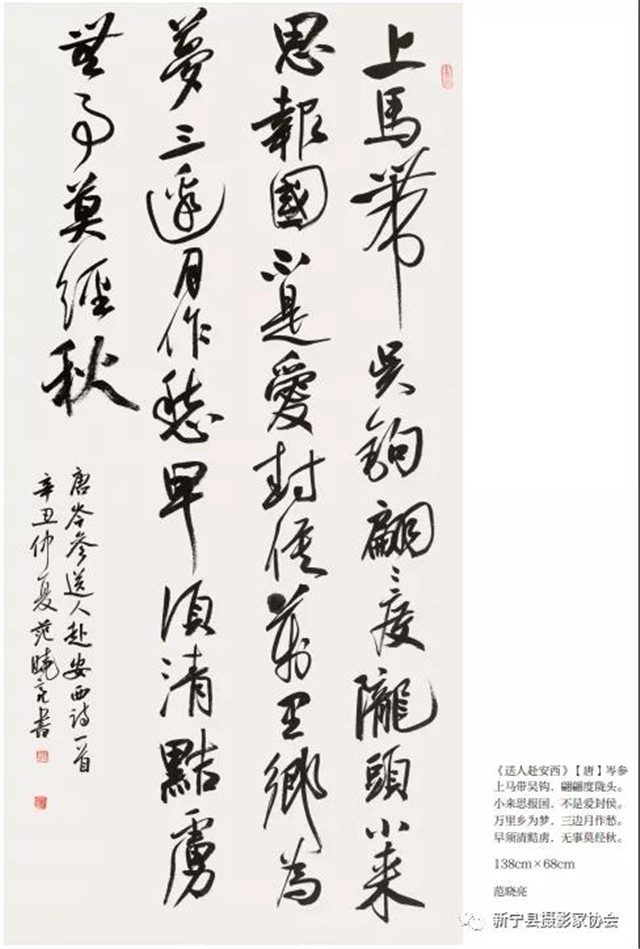 上馬帶吳鉤翩〻度隴頭小来
思報國不是愛封侯萬里鄉為
夢三邊月作愁早須清黠虜
無事莫經秋
唐岑參送人赴安西诗一首
辛丑仲夏范曉亮書
《送人赴安西》【唐】岑参
上马带吴钩，翩翩度陇头。
小来思报国，不是爱封侯。
万里乡为梦，三边月作愁。
早须清黠虏，无事莫经秋。
138cm×68cm
范晓亮
新宁县摄影家协会